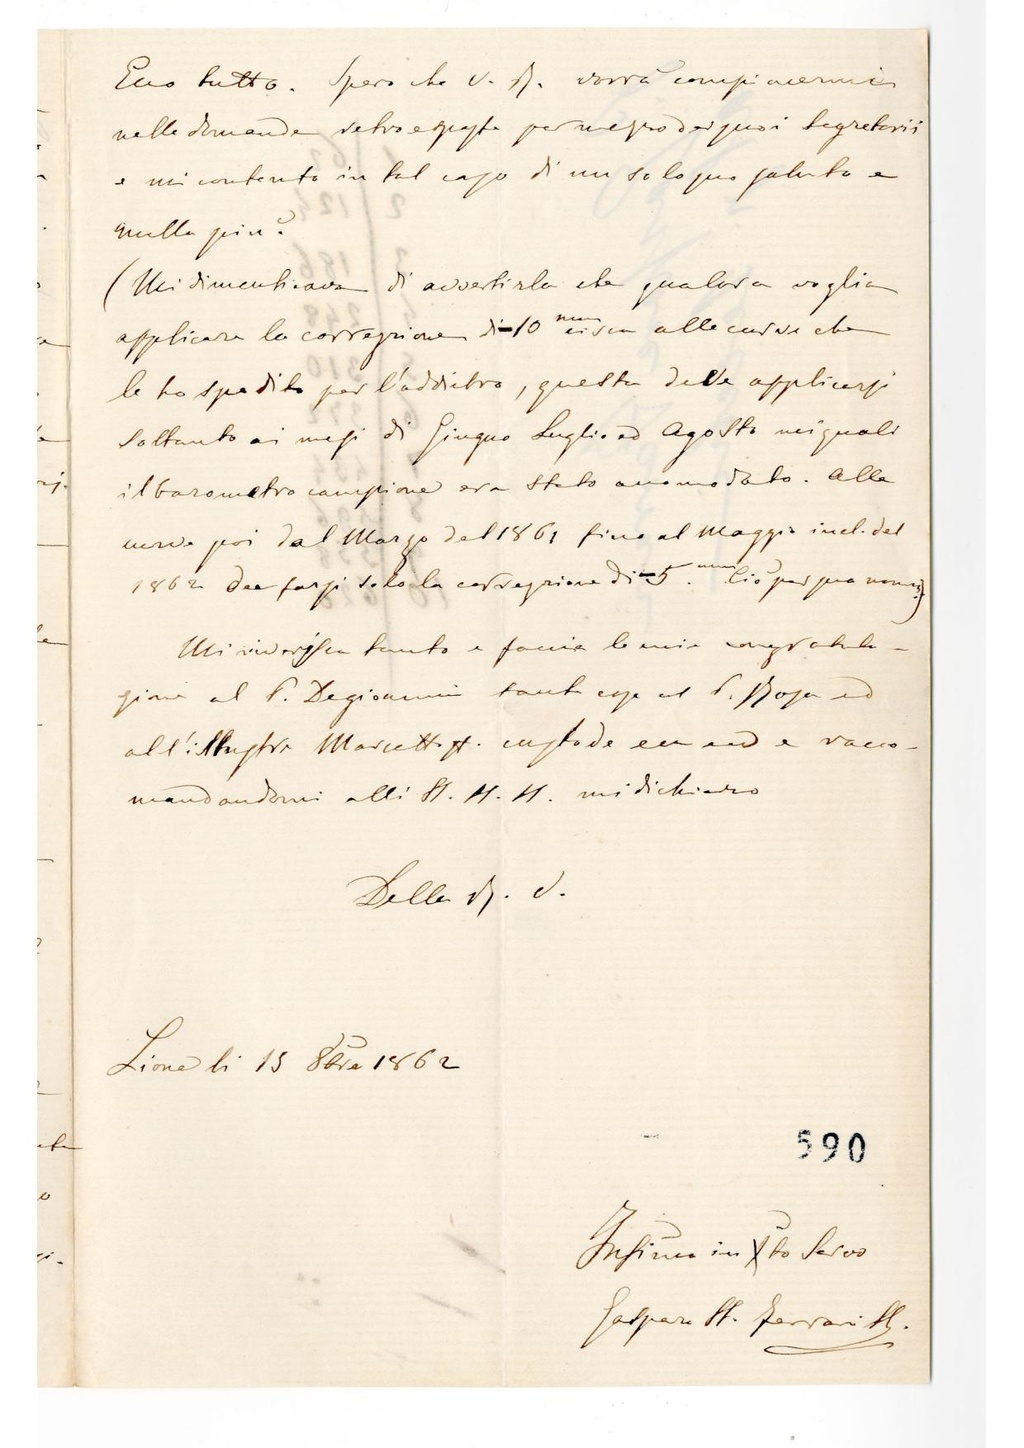 Ecco tutto. Spero che V. R. vorrà compiacermi
nelle domande retroesposte per mezzo dei suoi Segretarii
e mi contento in tal caso di un solo suo saluto e
nulla più.
(Mi dimenticava di avvertirla che qualora voglia
applicare la correzione di -10 mm circa alle curve che
le ho spedito per l'addietro, questa deve applicarsi
soltanto ai mesi di Giugno Luglio ed Agosto nei quali
il barometro campione era stato accomodato. Alle
curve poi dal Marzo del 1861 fino al Maggio incl. del
1862 dee farsi solo la correzione di -5 mm. Ciò per sua norma)
Mi riverisca tanto e faccia le mie congratula-
zioni al P. Degiovanni tante cose al P. Rosa ed
all'illustre Marcetti custode e racco-
mandandomi alli SS. SS. mi dichiaro
Della R. V.
Lione li 15 8bre 1862
590
Infimo in Xto Servo
Gaspare S. Ferrari S.